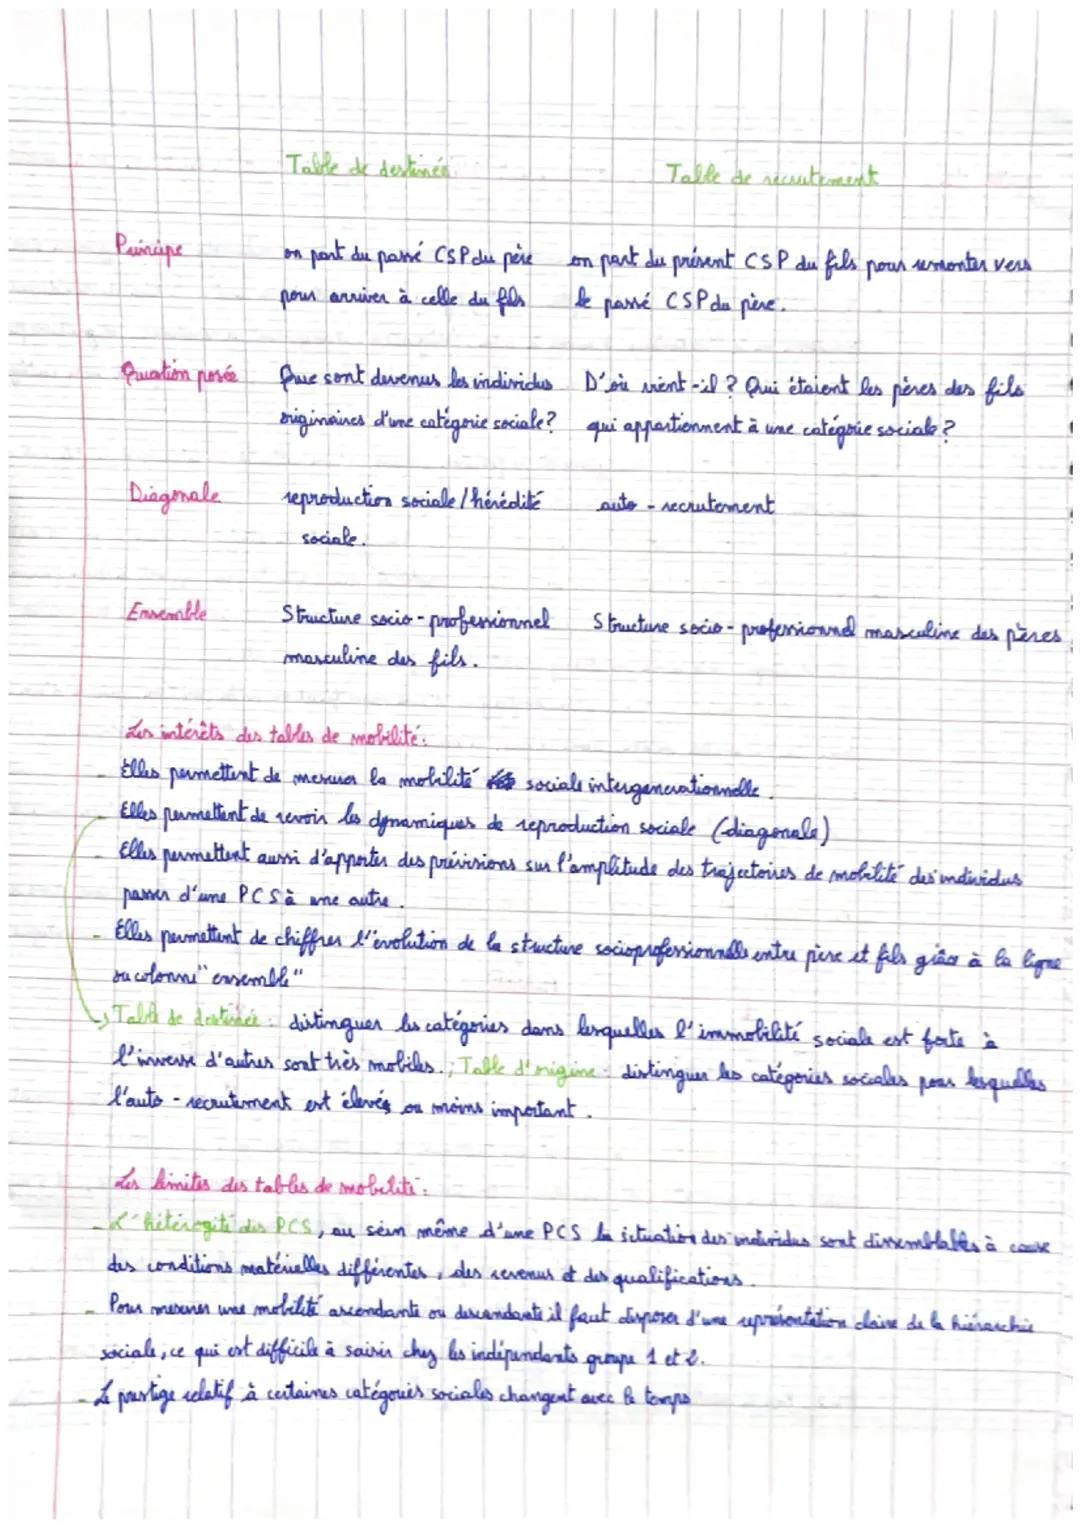 Table de destinée
Table de recrutement
Principe
on part du passé CSP du père
on part du présent CSP du fils pour remonter vers
pour arriver à celle du fils
le passé CSP du père.
Question posée
Que sont devenus les individus
D'où vient-il ? Qui étaient les pères des fils
originaires d'une catégorie sociale ?
qui appartiennent à une catégorie sociale ?
Diagonale
reproduction sociale / hérédité
auto-recrutement
sociale.
Ensemble
Structure socio-professionnel
Structure socio-professionnel masculine des pères
masculine des fils.
Les intérêts des tables de mobilité :
- Elles permettent de mesurer la mobilité sociale intergenerationnelle.
- Elles permettent de revoir les dynamiques de reproduction sociale (diagonale)
- Elles permettent aussi d'apporter des prévisions sur l'amplitude des trajectoires de mobilité des individus
passer d'une PCS à une autre.
- Elles permettent de chiffrer l'évolution de la structure socioprofessionnelle entre père et fils grâce à la ligne
ou colonne "ensemble"
→ Table de destinée : distinguer les catégories dans lesquelles l'immobilité sociale est forte à
l'inverse d'autres sont très mobiles. ; Table d'origine : distinguer les catégories sociales pour lesquelles
l'auto-recrutement est élevés ou moins important.
Les limites des tables de mobilité :
- L'hétérogité des PCS, au sein même d'une PCS la situation des individus sont dissemblables à cause
des conditions matérielles différentes, des revenus et des qualifications.
- Pour mesurer une mobilité ascendante ou descendante il faut disposer d'une représentation claire de la hiérarchie
sociale, ce qui est difficile à saisir chez les indépendants groupe 1 et 2.
- Le prestige relatif à certaines catégories sociales changent avec le temps